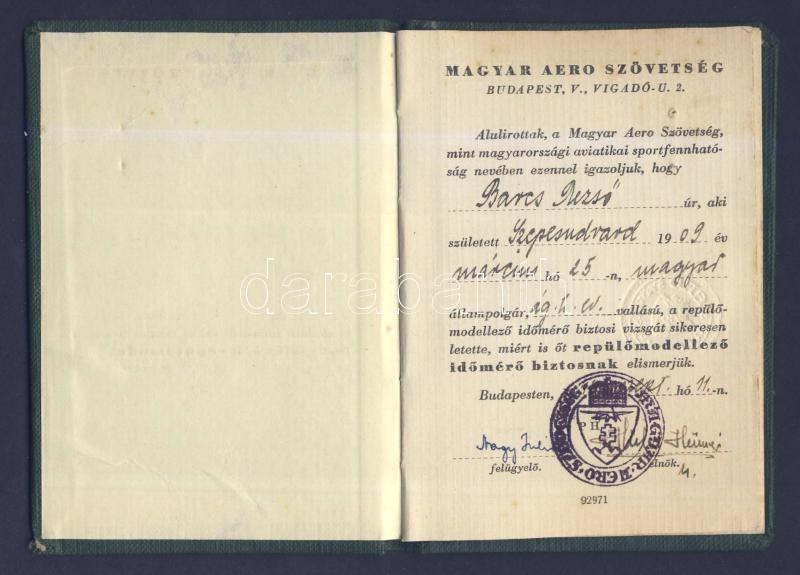 MAGYAR AERO SZÖVETSÉG
BUDAPEST, V., VIGADÓ-U. 2.
Alulirottak, a Magyar Aero Szövetség,
mint magyarországi aviatikai sportfennható-
ság nevében ezennel igazoljuk, hogy
Barcs Rezső úr, aki
született Szepesudvard 1909 év
március hó 25-n, magyar
állampolgár, ág. h. ev. vallású, a repülő-
modellező időmérő biztosi vizsgát sikeresen
letette, miért is őt repülőmodellező
időmérő biztosnak elismerjük.
Budapesten, hó 11.-n.
P H
MAGYAR AERO
Nagy
felügyelő. elnök.
92971
darabanth